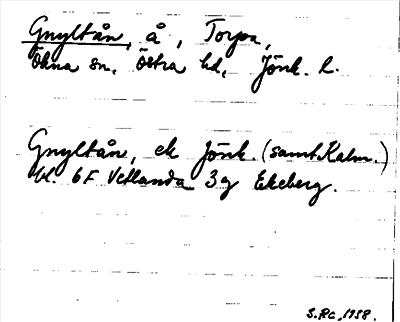 Gnyltån, å, Torpa,
Ökna sn, Östra hd, Jönk. l.
Gnyltån, ek Jönk. (samt Kalm.)
bl. 6F Vetlanda 3g Ekeberg.
S.Rc, 1958.